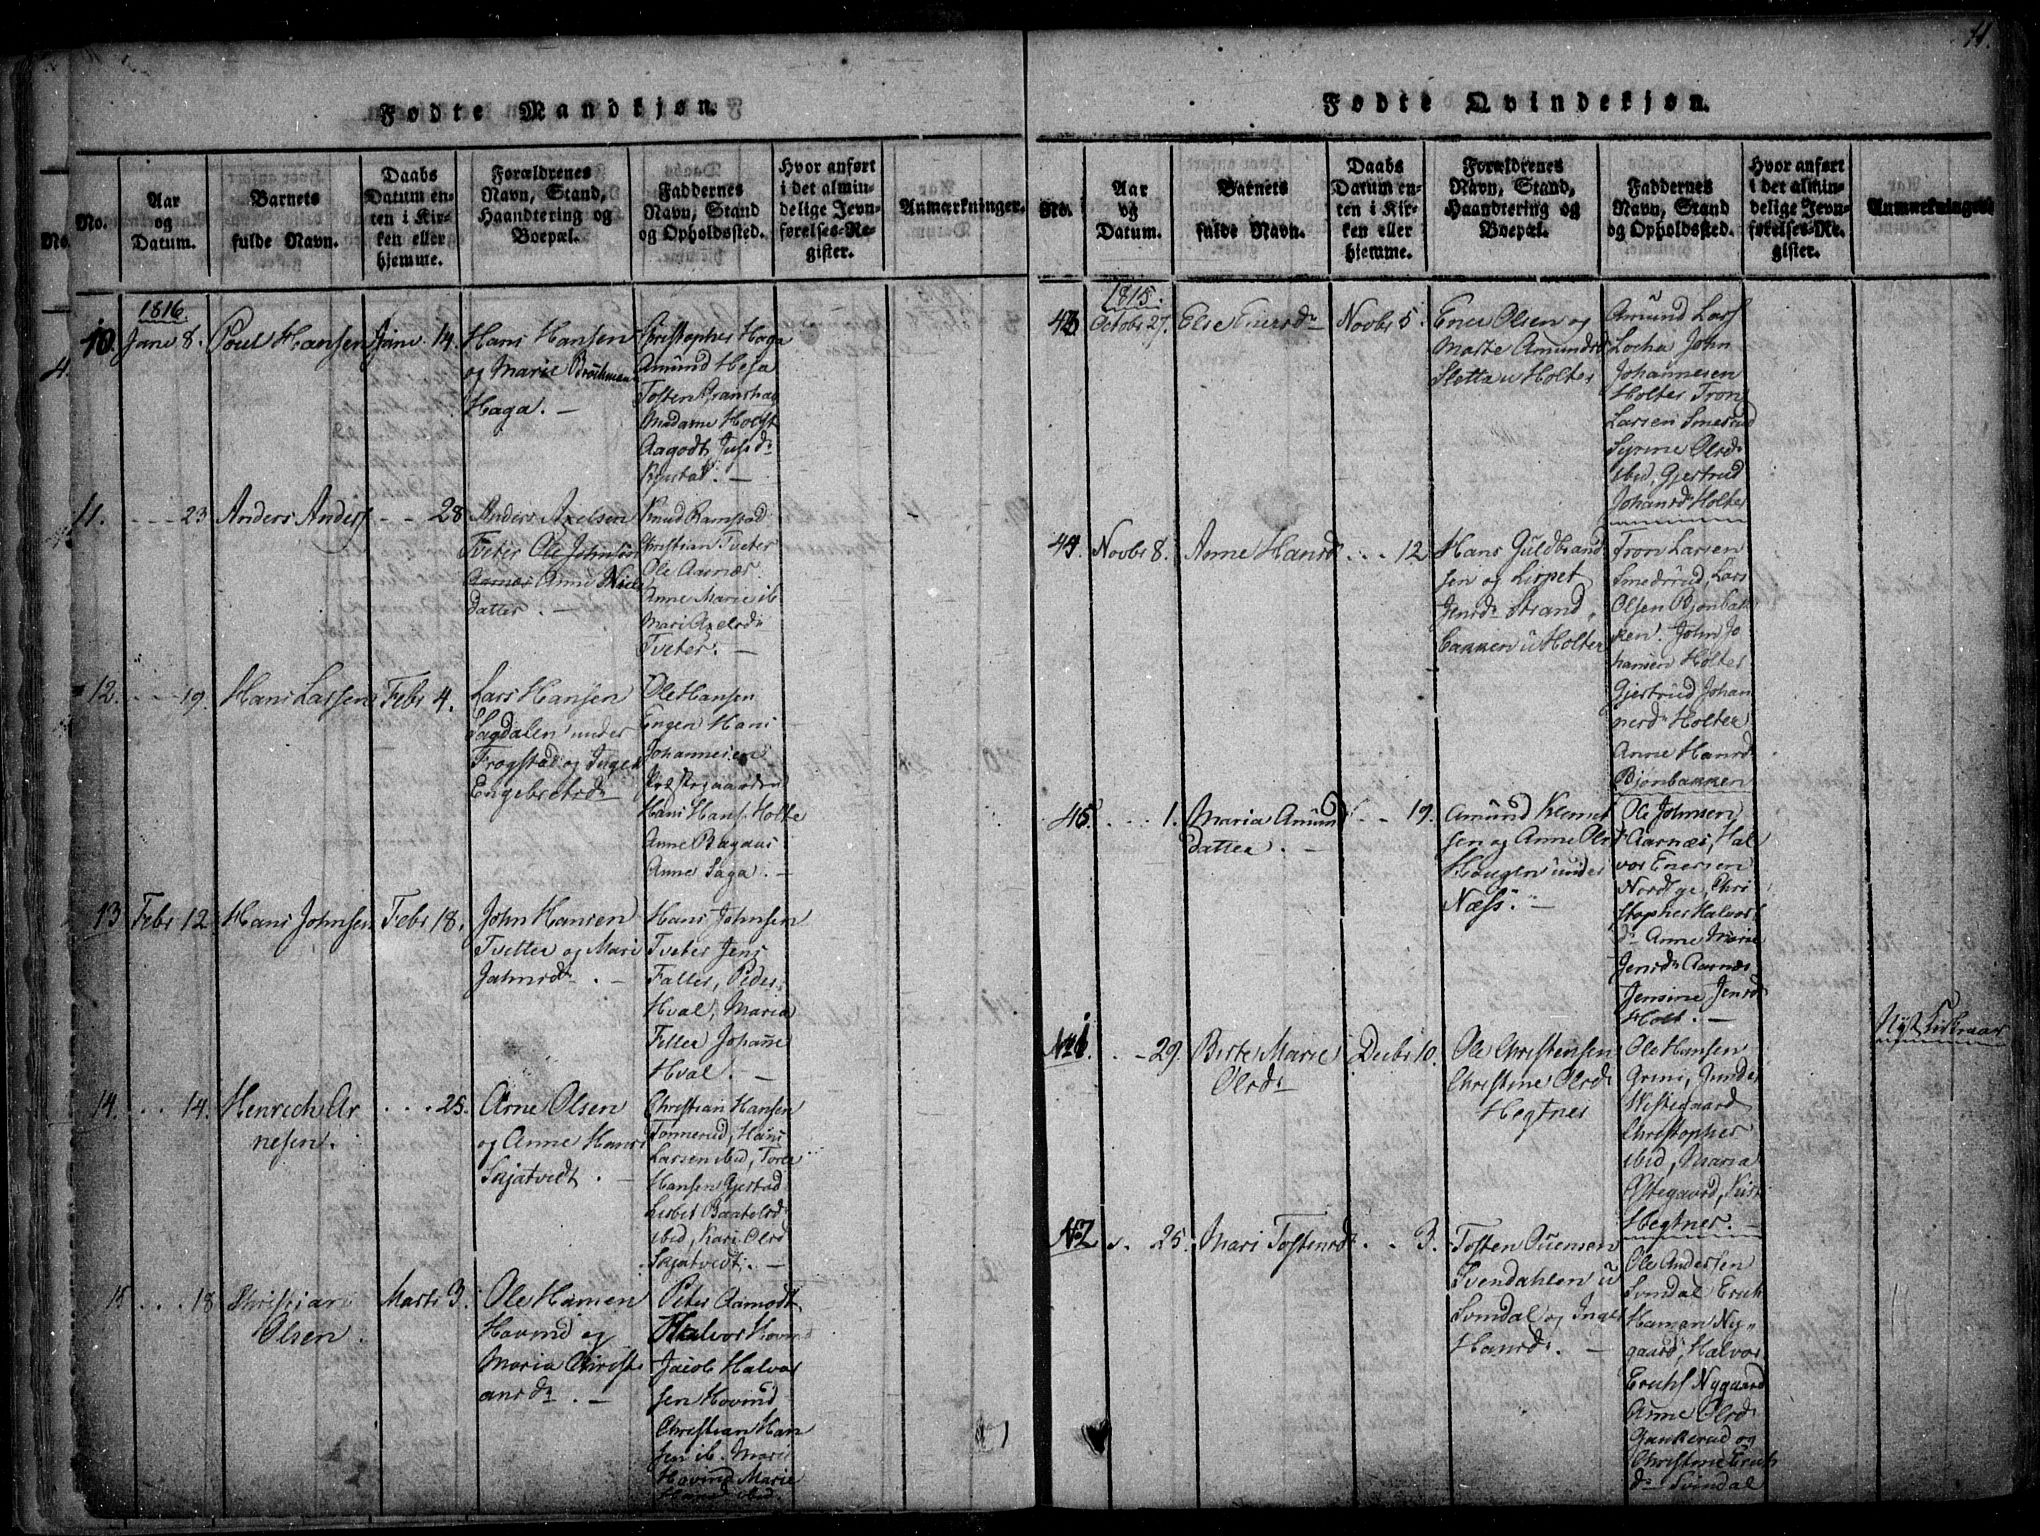 11.
Fødte Mandkjøn.
No.
No.
Aar
og
Datum.
Barnets
fulde Navn.
Daabs
Datum en-
ten i Kir-
ken eller
hjemme.
Forældrenes
Navn, Stand,
Haandtering og
Boepæl.
Faddernes
Navn, Stand
og Opholdssted.
Hvor anført
i det almin-
delige Jevn-
førelses-Re-
gister.
Anmærkninger.
4.
1816.
10.
Janv 8.
Poul Hansen
Janv 14.
Hans Hansen
og Marie
Haga. –
Kristopher Haga
Amund
Tosten
Madame Holst
Aagodt
11.
- - - 23
Anders Anders
- - 28
Anders Axelsen
Tveter Ole Johnsen
Aarnæs Anne Niels
datter. –
Knud Ramstad
Christian Tveter
Ole Aarnæs
Anne Marie ib
Mari Axelsdr
Tveter. –
12.
- - - 19.
Hans Larsen
Febr 4.
Lars Hansen
Sagdalen under
Frogstad og Inger
Engebretsdr
Ole Hansen
Engen Hans
Johannesen
Præstegaarden
Hans Hans. Holte
Anne
Anne Saga. –
13
Febr 12
Hans Johnsen
Febr 18.
John Hansen
Tvetter og Mari
Jahnsdr. –
Hans Johnsen
Tveter Jens
Faller, Peder
Hval, Maria
Feller Johanne
Hval. –
14.
. . . 14.
Henrich Ar
nesen.
. . . 25.
Arne Olsen
og Anne Hansd
Skjatvedt. –
Christian Hansen
Tonnerud, Hans
Larsen ibid, Tore
Hansen Gjestad
Lisbet Baatelsdr
ibid, Kari Olsd
Skjatvedt. –
15
. . . 18
Christian
Olsen.
Marts 3.
Ole Hansen
Hovind og
Maria Christi
ansdr. –
Peter Aamodt
Halvor Hovind
Jacob Halvor
sen Hovind
Christian Han
sen ib. Mari
Hovind Marie
Hansd ibid.
Fødte Qvindekjøn.
No.
Aar
og
Datum.
Barnets
fulde Navn.
Daabs
Datum en-
ten i Kir-
ken eller
hjemme.
Forældrenes
Navn, Stand,
Haandtering og
Boepæl.
Faddernes
Navn, Stand
og Opholdssted.
Hvor anført
i det almin-
delige Jevn-
førelses-Re-
gister.
Anmærkninger
1815.
43
Octobr 27.
Else Enersdr
Novbr 5.
Ener Olsen og
Marte Amundsd
Sletta u Holter
Amund Lars
Locha John
Johannesen
Holter Tron
Larsen Smerud
Syrine Olsdr
ibid, Gjertrud
Johansdr Holter
44
Novbr 8.
Anne Hansd
. . . 12
Hans Guldbrand
sen og Lispet
Jensdr Strand
bakken u Holter
Tron Larsen
Smedsrud, Lars
Olsen Bjønbak
ken. John Jo
hansen Holter
Gjertrud Johan
nesdr Holter
Anne Hansd
Bjønbakken
45.
. . . 1.
Maria Amund
datter. –
. . . 19.
Amund Klemet
sen og Anne Olsd
Haugen under
Næss. –
Ole Johnsen
Aarnæs, Hal
vor Enersen
Nordbye, Chri
stopher Halvors
dr Anne Marie
Jensdr Aarnæs
Jensine Jensd
Holt. –
No 1.
. . - 29.
Birte Marie
Olsdr
Decbr 10.
Ole Christensen
Christine Olsdr
Hegtnes
Ole Hansen
Grini, Gunder
Westegaard
Christopher
ibid, Maria
Østegaard,
Hegtner. –
Nyt Kirkeaar
No 2
. . 25.
Mari Tostensdr
. . 3.
Tosten Svensen
Svendahlen u
Svindal og Inger
Hansdr. –
Ole Andersen
Svindal Erich
Hansen Ny-
gaard, Halvor
Erichs Nygaard
Anne Olsdr
Gankerud og
Christine Erich
dr Svindal